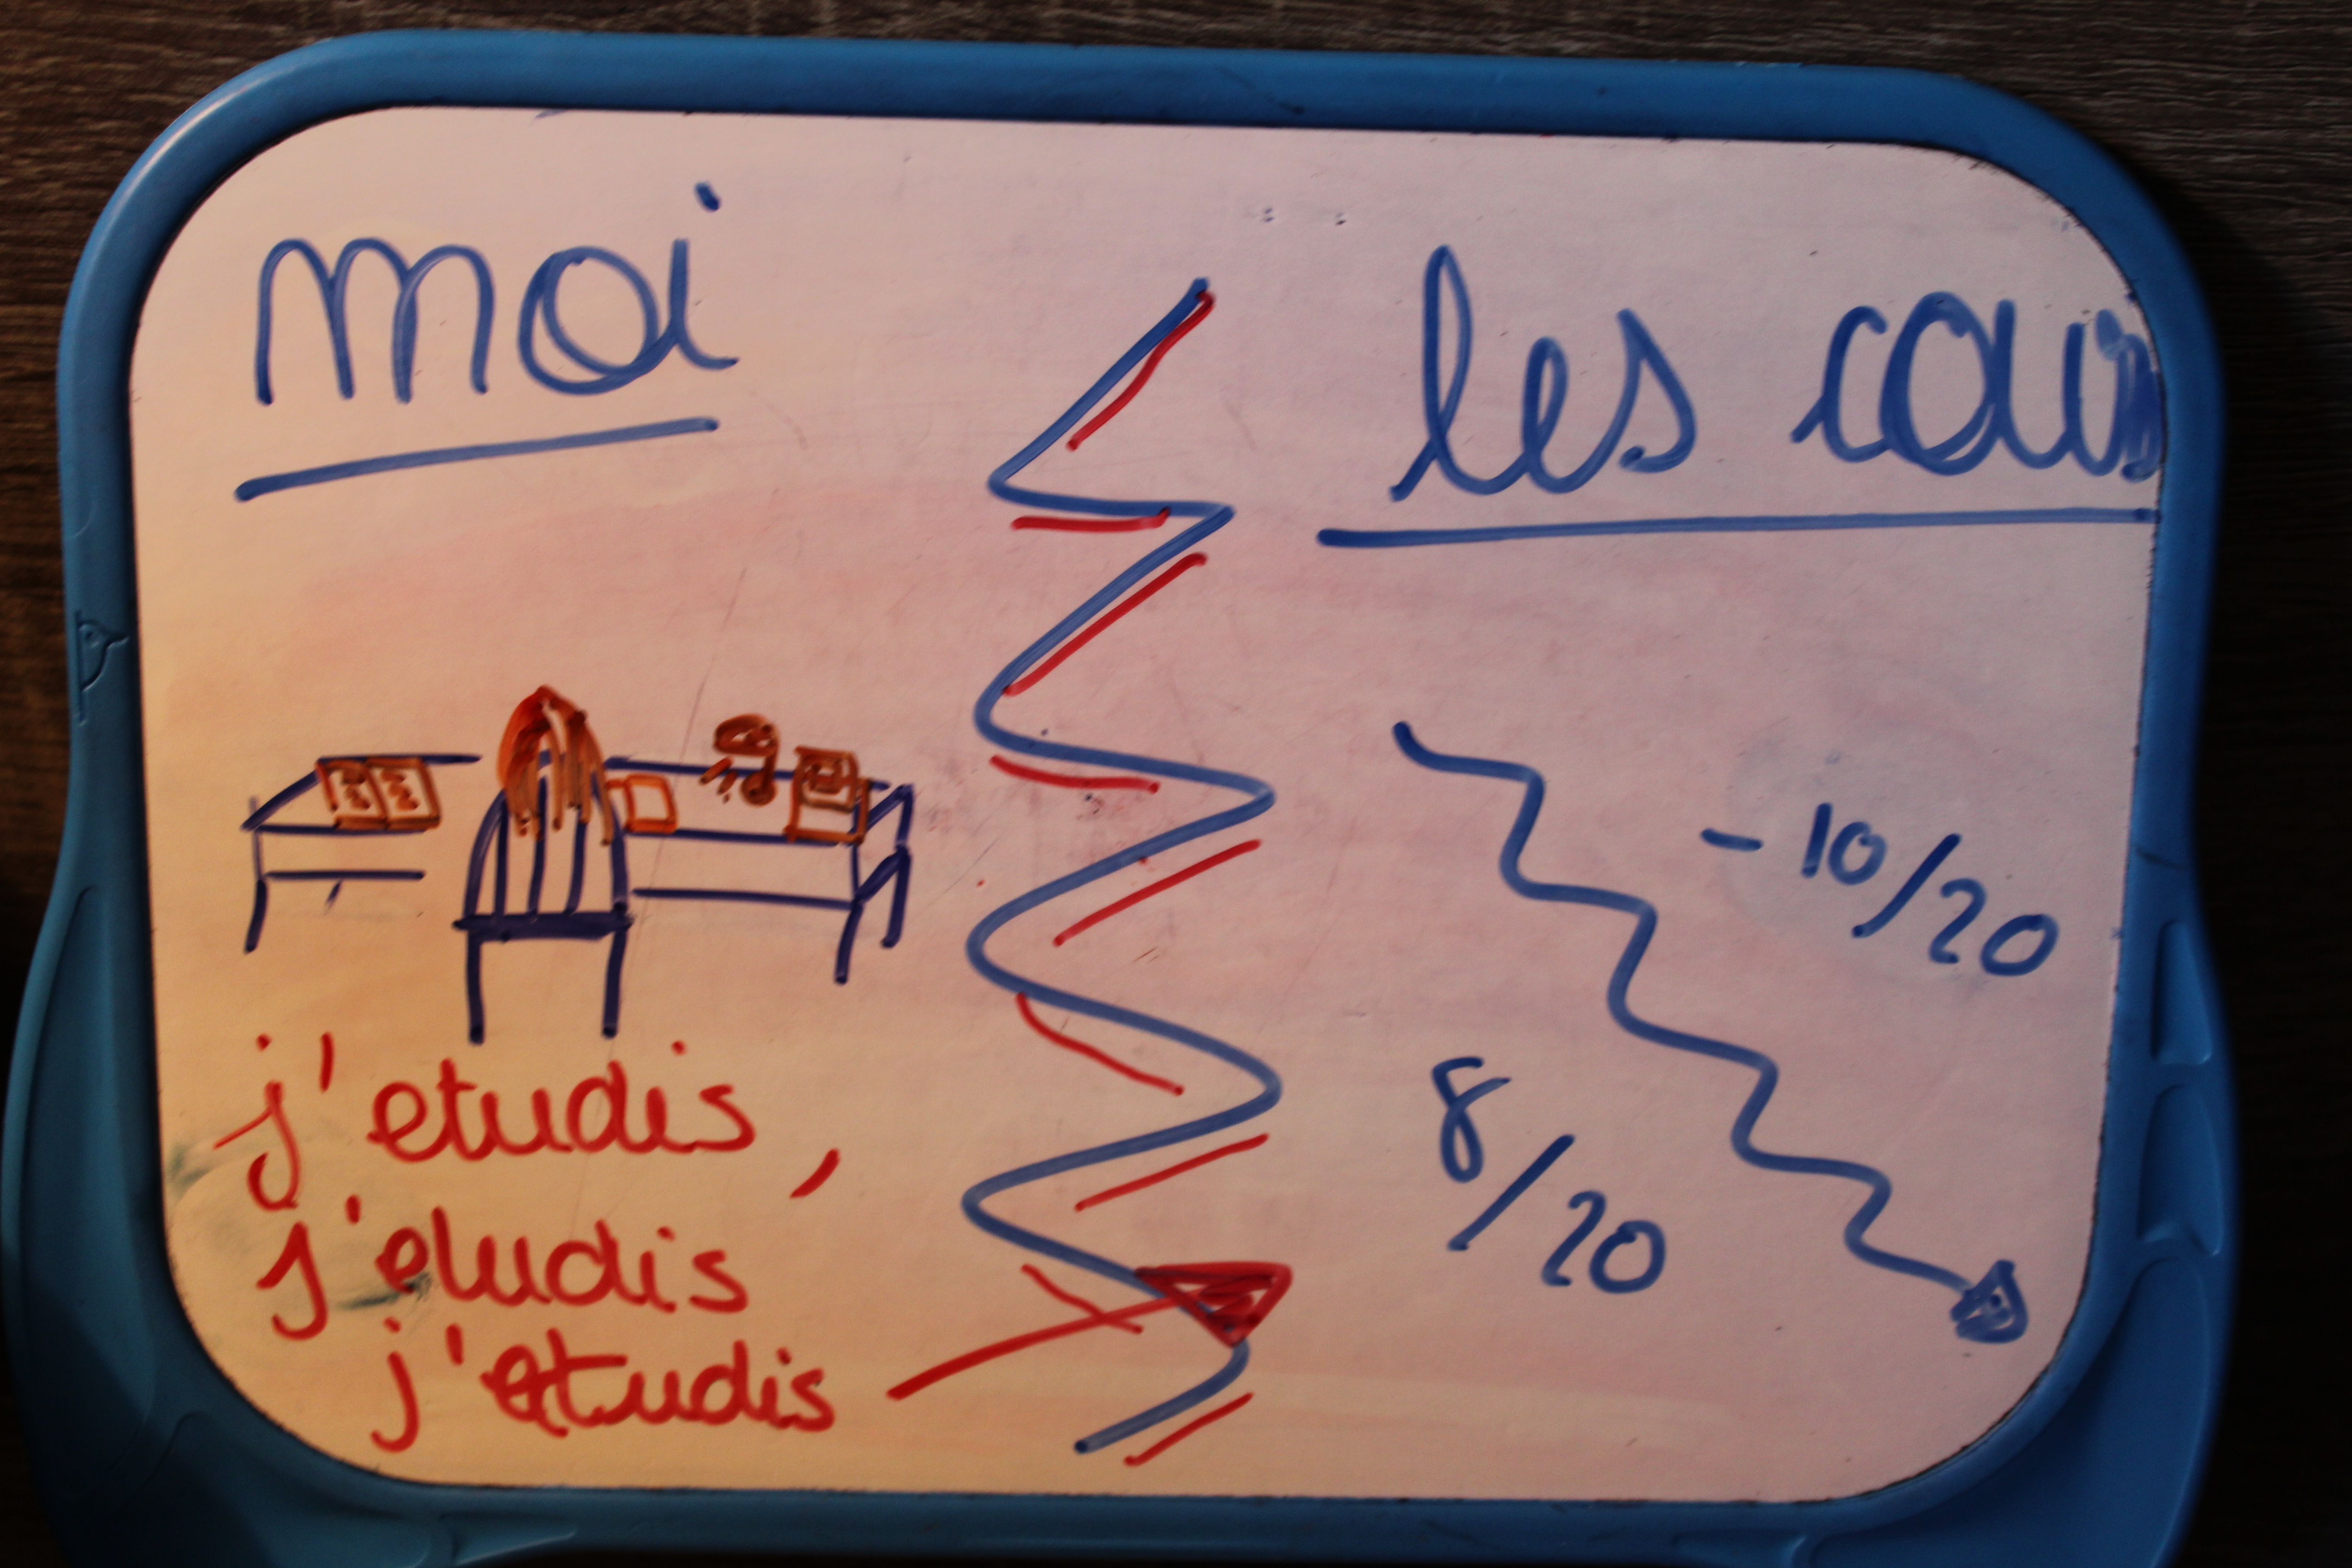 moi
les cours
j'etudis,
j'etudis
j'etudis
-10/20
8/20